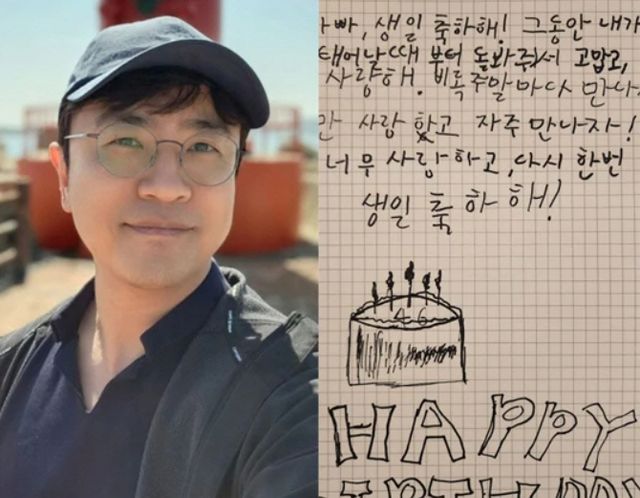 아빠, 생일 축하해! 그동안 내가
태어날때 부터 돌봐줘서 고맙고,
사랑해. 비록 주말마다 만나
지만 사랑 하고 자주 만나자!
너무 사랑하고, 다시 한번
생일 축하해!
46
HAPPY
BIRTHDAY